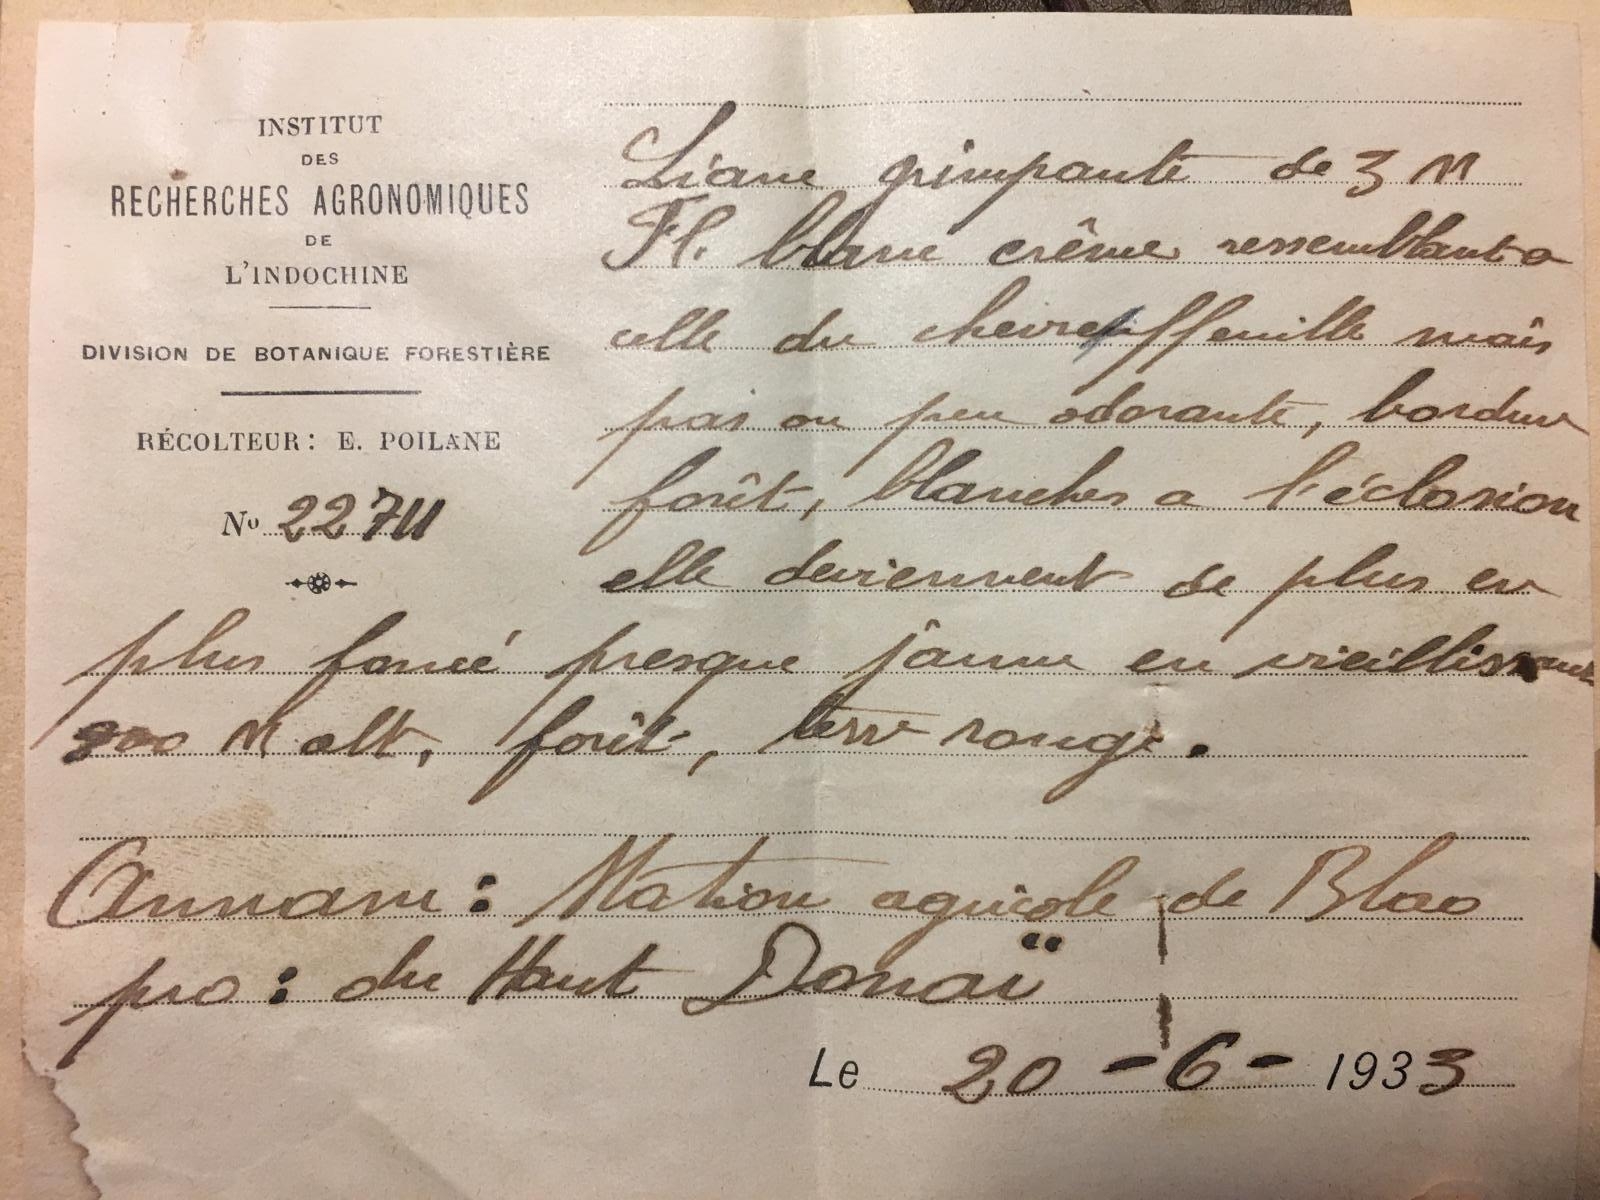 INSTITUT
DES
RECHERCHES AGRONOMIQUES
DE
L'INDOCHINE
DIVISION DE BOTANIQUE FORESTIÈRE
RÉCOLTEUR: E. POILANE
No 22711
Liane grimpante de 3 M
Fl. blanc crême ressemblant a
celle du chevreffeuille mais
pas ou peu odorante, bordure
forêt, blanches a l'éclosion
elle deviennent de plus en
plus foncé presque jaune en vieillissant
M alt, forêt, terre rouge.
Annam: Station agricole de Blao
pro: du Haut Donaï
Le 20 - 6 - 1933